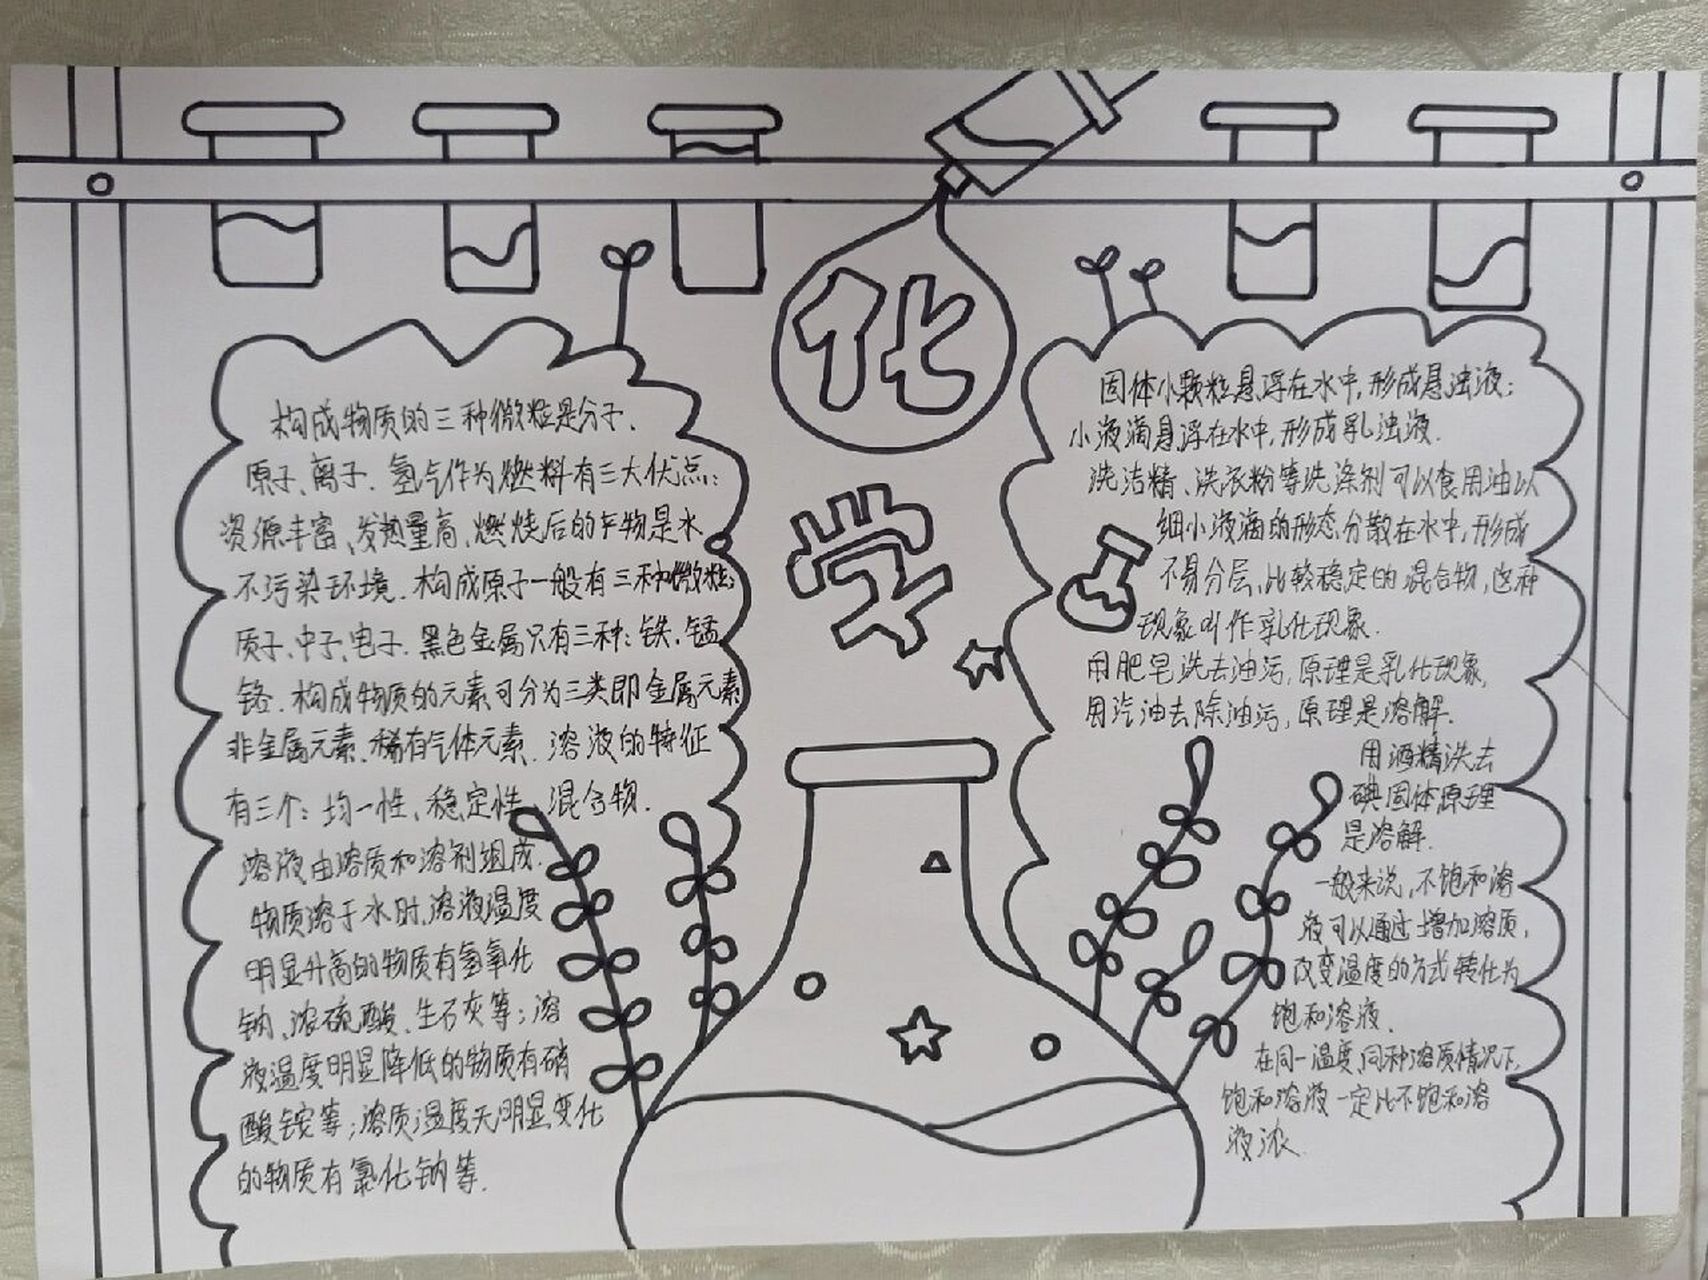 化
学
构成物质的三种微粒是分子、
原子、离子.氢气作为燃料有三大优点:
资源丰富、发热量高、燃烧后的产物是水
不污染环境.构成原子一般有三种微粒:
质子、中子、电子.黑色金属只有三种:铁、锰
铬.构成物质的元素可分为三类即金属元素
非金属元素、稀有气体元素.溶液的特征
有三个:均一性、稳定性、混合物.
溶液由溶质和溶剂组成.
物质溶于水时,溶液温度
明显升高的物质有氢氧化
钠、浓硫酸、生石灰等;溶
液温度明显降低的物质有硝
酸铵等;溶质温度无明显变化
的物质有氯化钠等.
固体小颗粒悬浮在水中,形成悬浊液;
小液滴悬浮在水中,形成乳浊液.
洗洁精、洗衣粉等洗涤剂可以食用油以
细小液滴的形态分散在水中,形成
不易分层,比较稳定的混合物,这种
现象叫作乳化现象.
用肥皂洗去油污,原理是乳化现象,
用汽油去除油污,原理是溶解.
用酒精洗去
碘固体原理
是溶解.
一般来说,不饱和溶
液可以通过增加溶质,
改变温度的方式转化为
饱和溶液.
在同一温度,同种溶质情况下,
饱和溶液一定比不饱和溶
液浓.